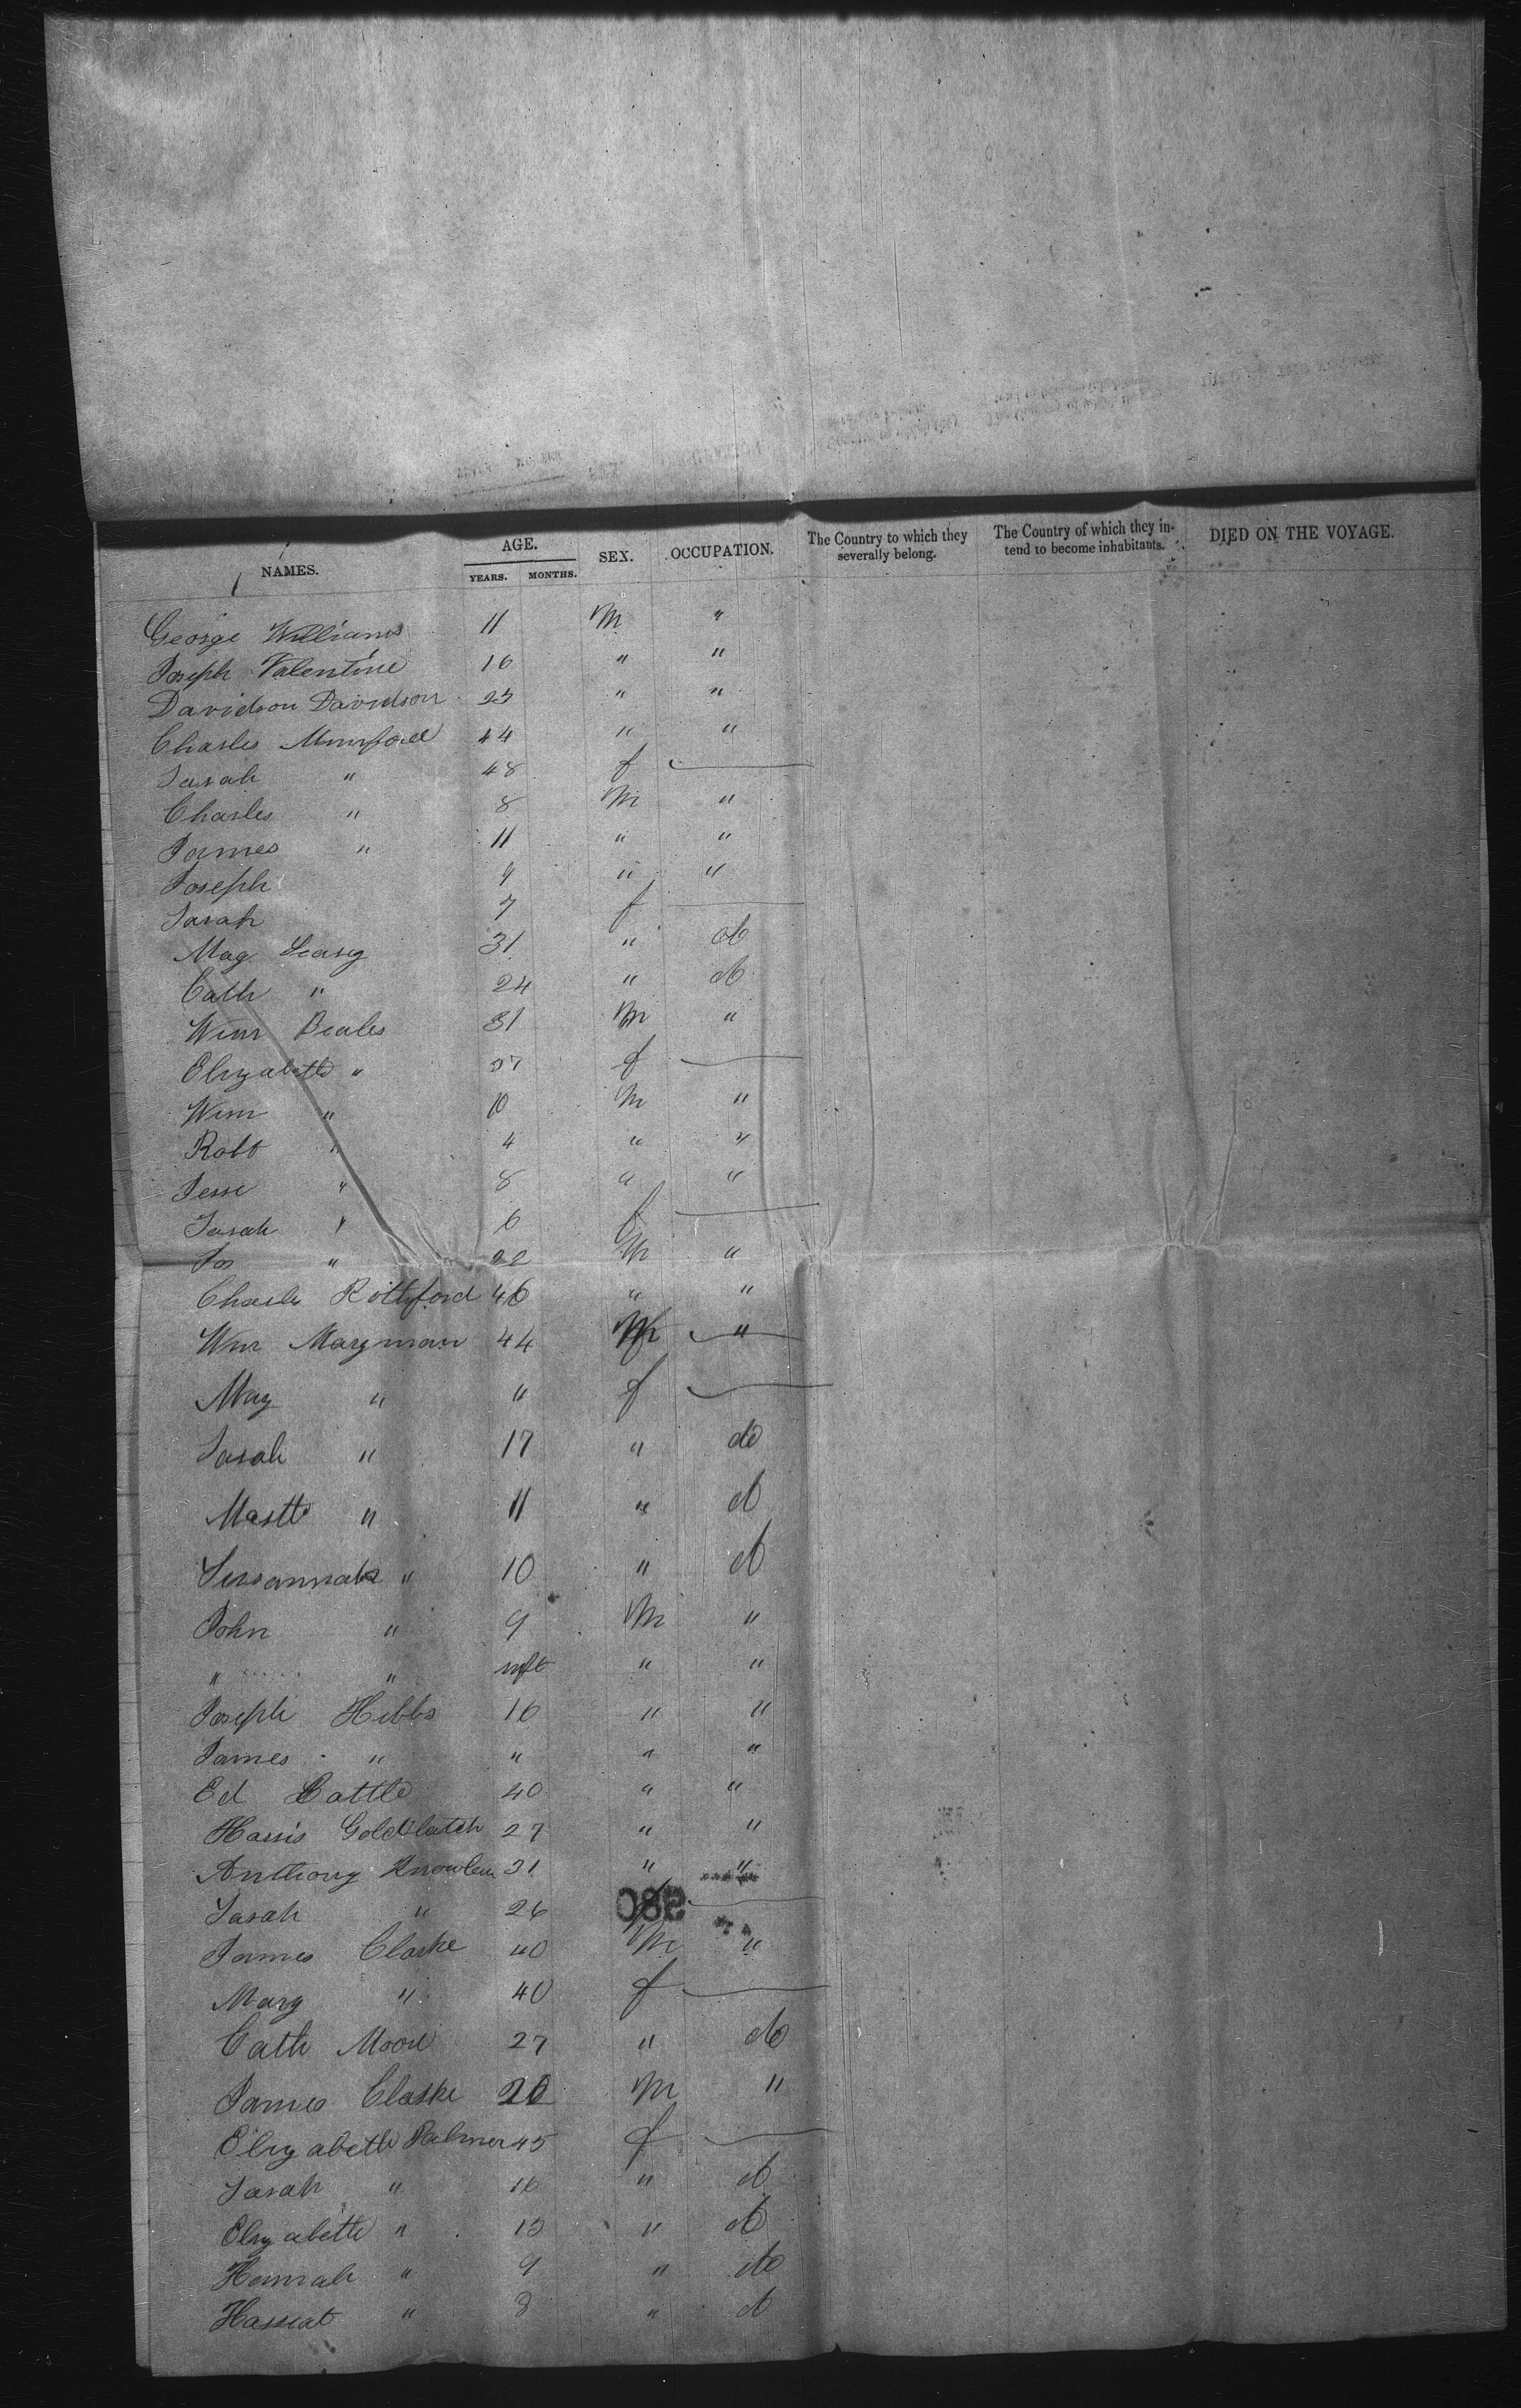 NAMES. AGE. YEARS. MONTHS. SEX. OCCUPATION. The Country to which they severally belong. The Country of which they in-tend to become inhabitants. DIED ON THE VOYAGE.
George Williams 11 M "
Joseph Valentine 16 " "
Davidson Davidson 23 " "
Charles Mumford 44 " "
Sarah " 48 f
Charles " 8 M "
James " 11 " "
Joseph 9 " "
Sarah 7 f
Mag Leary 31 " do
Cath " 24 " do
Wm Beales 31 M "
Elizabeth " 37 f
Wm " 10 M "
Robt " 4 " "
Jesse " 8 " "
Sarah " 6 f
Jos " 22 M "
Charls Rothford 46 " "
Wm Maryman 44 M "
May " " f
Sarah " 17 " do
Martt " 11 " do
Susannah " 10 " do
John " 9 M "
" " inft " "
Joseph Hibbs 16 " "
James " " " "
Ed Cattle 40 " "
Harris Goldblatch 27 " "
Anthony 31 " "
Sarah " 26 f
580
James Clarke 40 M "
Mary " 40 f
Cath Moore 27 " do
James Clarke 20 M "
Elizabeth Palmer 45 f
Sarah " 16 " do
Elizabeth " 13 " do
Hannah " 9 " do
Harriat " 8 " do